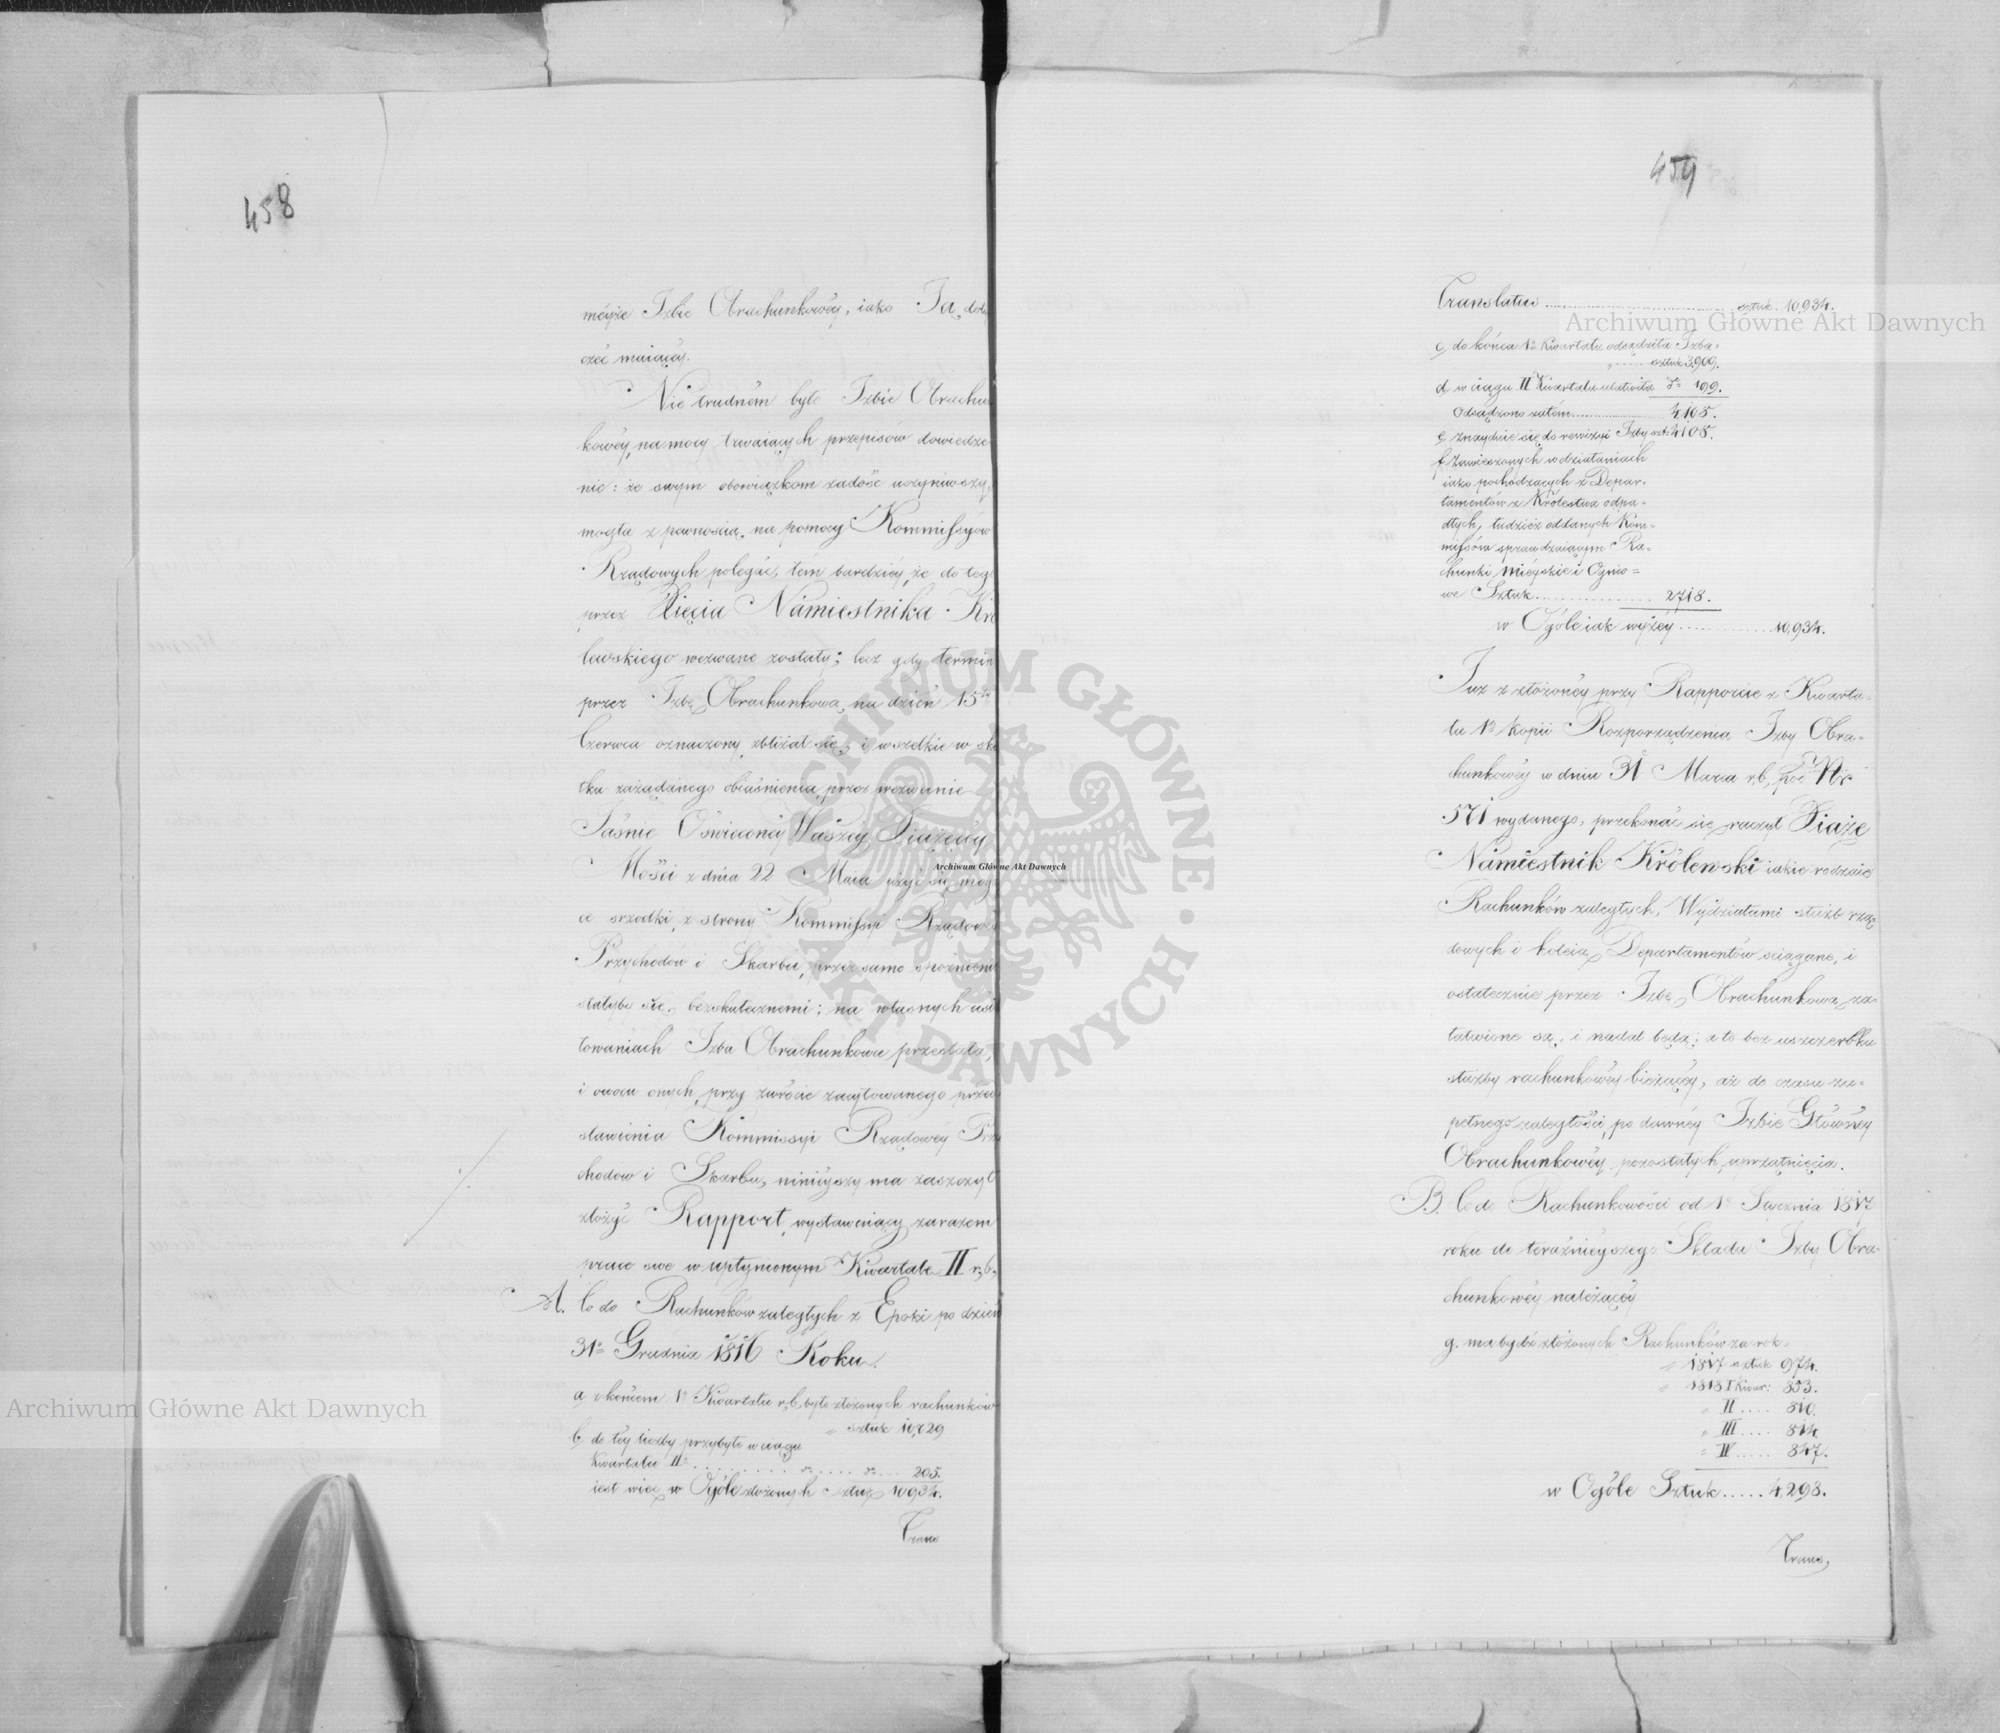 458
méyże Izbie Obrachunkowéy, iako Ją, do
czéc maiącéy.
Nie trudném było Izbie Obrachu
kowéy, na mocy trwaiących przepisów dowiedze
nie: że swym obowiązkom zadość uczyniwszy,
mogła z pewnością, na pomocy Kommissyów
Rządowych polegać, tém bardziéy, że do teg
przez Xięcia Namiestnika Kró
lewskiego wezwane zostały; lecz gdy termin
przez Izbę Obrachunkową, na dzień 15ty
Czerwca oznaczony zbliżał się, i wszelkie w sku
tku zażądanego obiaśnienia, przez wezwanie
Jaśnie Oświeconéy Waszéy Xiążęcéy
Mości z dnia 22 Maia użyć się mog
ce srzodki, z strony Kommissyi Rządowéy
Przychodów i Skarbu, przez samo spóźnienie
stałyby się, bezskutecznemi; na własnych usi
łowaniach Izba Obrachunkowa przestała,
i owocu onych, przy zwrócie zacytowanego przed
stawienia Kommissyi Rządowéy Przy
chodów i Skarbu, ninieyszy ma zaszczyt
złożyć Rapport, wystawuiący zarazem
prace swe w upłynionym Kwartale II r. b.
A. Co do Rachunków zaległych z Epoki po dzień
31o Grudnia 1816 Roku.
a, z końcem 1o Kwartału r. b. było złożonych rachunków
" sztuk 10,729
b, do téy liczby przybyło w ciągu
Kwartału IIo ........ do ..... do .... 205.
iest więc w Ogóle złożonych Sztuk 10934.
Trans
459
Translatus ........................ sztuk 10,934.
c, do końca 1o Kwartału odsądziła Izba
" ..... sztuk 3,909.
d, w ciągu II Kwartału ułatwiła do 199.
Odsądzono zatém ............ 4,108.
e, znayduie się do rewizyi Izby szt: 4108.
f, Zawieszonych w działaniach
iako pochodzących z Depar-
tamentów z Królestwa odpa-
dłych, tudzież oddanych Kom-
missów sprawdzaiącym Ra-
chunki Mieyskie i Ognio=
we Sztuk ................ 2718.
w Ogóle iak wyżéy ............ 10,934.
Już z złożonéy przy Rapporcie z Kwarta-
łu 1o Kopii Rozporządzenia Izby Obra-
chunkowéy w dniu 31 Marca r. b. pod Nr
571 wydanego, przekonać się raczył Xiąże
Namiestnik Królewski iakie rodzaie
Rachunków zaległych, Wydziałami służb rzą
dowych i koleią Departamentów ściągane, i
ostatecznie przez Izbę Obrachunkową za-
łatwione są, i nadal będą; a to bez uszczerbku
służby rachunkowéy bieżącéy, aż do czasu zu-
pełnego zaległości, po dawnéy Izbie Głównéy
Obrachunkowéy pozostałych, uprzątnięcia.
B. Co do Rachunkowości od 1o Stycznia 1817
roku do teraźnieyszego Składu Izby Obra-
chunkowéy należącéy
g. ma bydź złożonych Rachunków za rok-
" 1817 sztuk 974.
" 1818 I Kwar: 853.
" II .... 810.
" III .... 814.
" IV .... 847.
w Ogóle Sztuk ..... 4,298.
Trans,
Archiwum Główne Akt Dawnych
Archiwum Główne Akt Dawnych
Archiwum Główne Akt Dawnych
ARCHIWUM GŁÓWNE AKT DAWNYCH